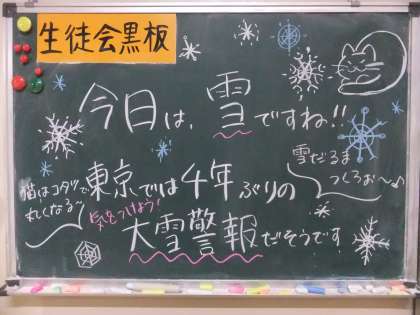 生徒会黒板
今日は、雪ですね!!
雪だるま
つくろぉ〜♪
猫はコタツで
丸くなる〜
東京では4年ぶりの
気をつけよう!
大雪警報だそうです